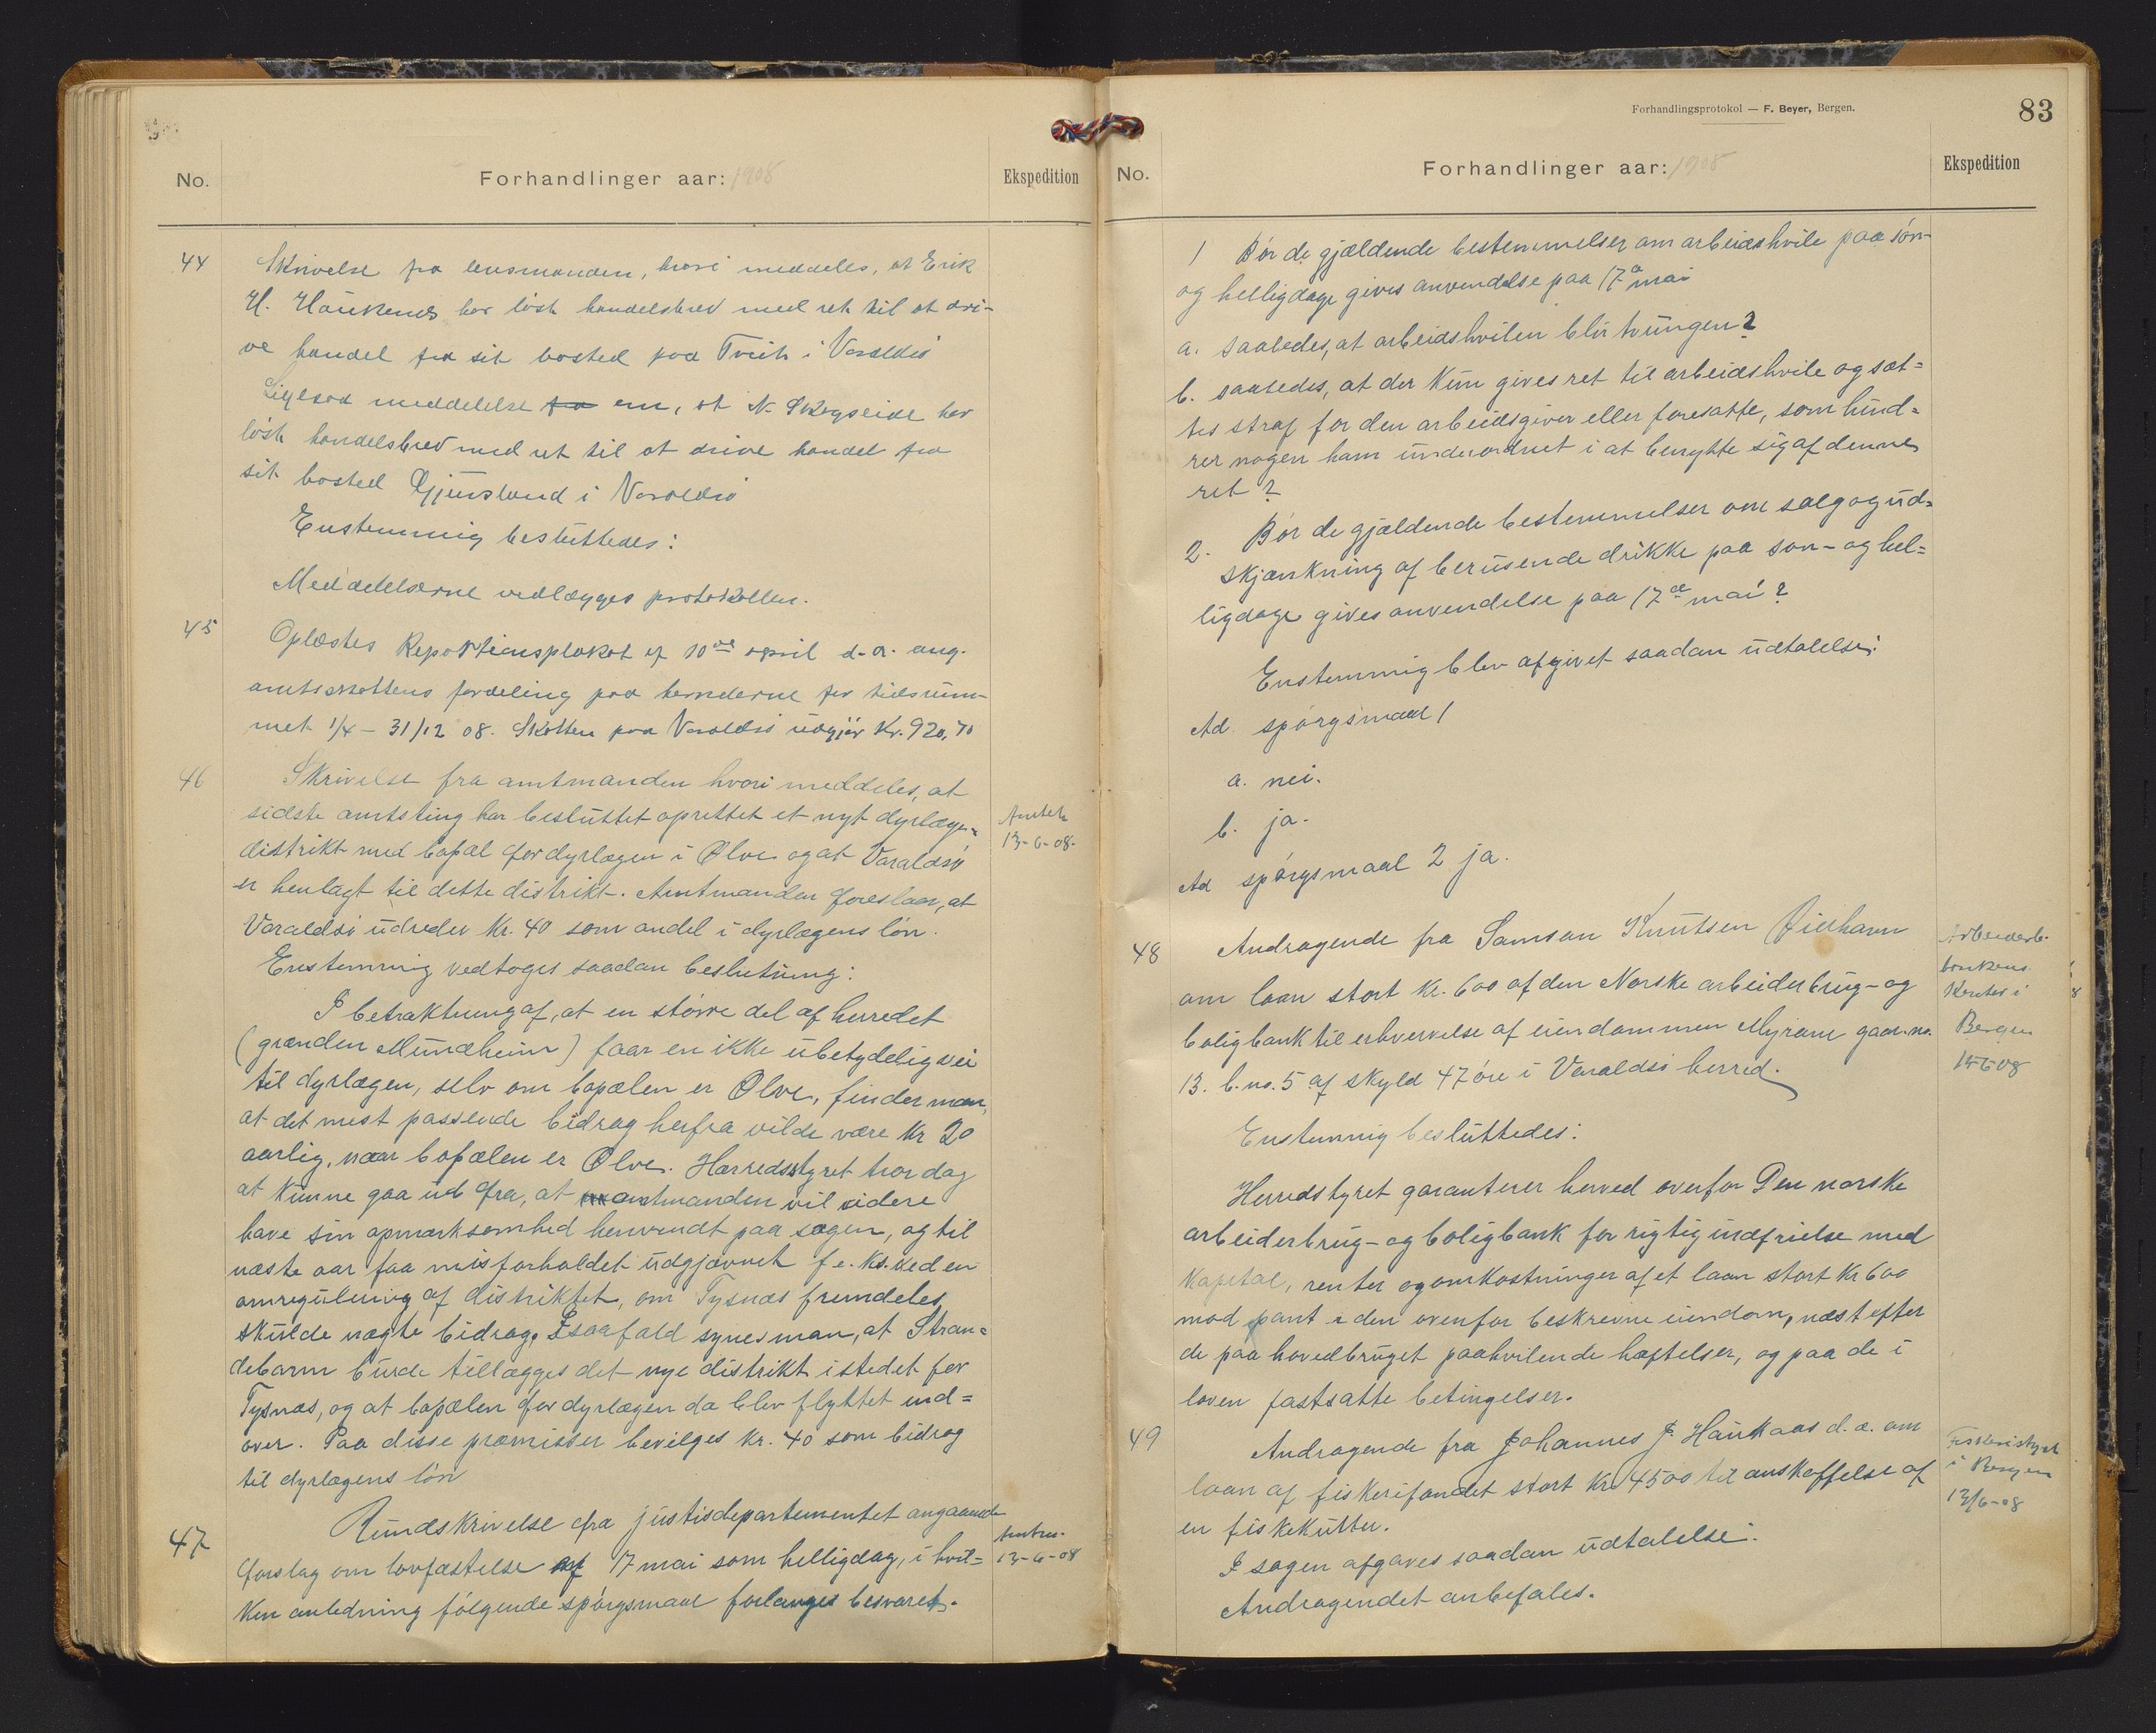 No.
Forhandlinger aar: 1908
Ekspedition
44
Skrivelse fra lensmanden, hvori meddeles, at Erik
H. Haukenes har løst handelsbrev med ret til at dri-
ve handel fra sit bosted paa Tveit i Varaldsø
Ligesaa meddelelse fra om, at N. Skogseide har
løst handelsbrev med ret til at drive handel fra
sit bosted Gjuvsland i Varaldsø
Enstemmig besluttedes:
Meddelelserne vedlægges protokollen.
45
Oplæstes Repartitionsplakat af 10de april d.a. ang.
amtsskattens fordeling paa herrederne for tidsrum-
met 1/4 - 31/12 08. Skatten paa Varaldsø udgjør Kr. 920,70
46
Skrivelse fra amtmanden hvori meddeles, at
sidste amtsting har besluttet oprettet et nyt dyrlæge-
distrikt med bopæl for dyrlægen i Ølve og at Varaldsø
er henlagt til dette distrikt. Amtmanden foreslaar, at
Varaldsø udreder Kr. 40 som andel i dyrlægens løn.
Amtet
13-6-08.
Enstemmig vedtoges saadan beslutning:
I betraktning af, at en større del af herredet
(grænden Mundheim) faar en ikke ubetydelig vei
til dyrlægen, selv om bopælen er Ølve, finder man,
at det mest passende bidrag herfra vilde være Kr 20
aarlig, naar bopælen er Ølve. Herredsstyret tror dog
at kunne gaa ud fra, at amtmanden vil videre
have sin opmærksomhed henvendt paa sagen, og til
næste aar faa misforholdet udgjævnet f. eks. ved en
omregulering af distriktet, om Tysnæs fremdeles
skulde nægte bidrag. Isaafald synes man, at Stran-
debarm burde tillægges det nye distrikt istedet for
Tysnæs, og at bopælen for dyrlægen da blev flyttet ind-
over. Paa disse præmisser bevilges Kr. 40 som bidrag
til dyrlægens løn
47
Rundskrivelse fra justisdepartementet angaaende
forslag om lovfæstelse af 17 mai som helligdag, i hvil-
ken anledning følgende spørgsmaal forlanges besvaret.
13-6-08
Forhandlingsprotokol — F. Beyer, Bergen.
83
No.
Forhandlinger aar: 1908
Ekspedition
1 Bør de gjældende bestemmelser om arbeidshvile paa søn-
og helligdage gives anvendelse paa 17de mai
a. saaledes, at arbeidshvilen blir tvungen?
b. saaledes, at der kun gives ret til arbeidshvile og sæt-
tes straf for den arbeidsgiver eller foresatte, som hind-
rer nogen ham underordnet i at benytte sig af denne
ret?
2. Bør de gjældende bestemmelser om salg og ud-
skjænkning af berusende drikke paa søn- og hel-
ligdage gives anvendelse paa 17de mai?
Enstemmig blev afgivet saadan udtalelse:
Ad spørgsmaal 1
a. nei.
b. ja.
Ad spørgsmaal 2 ja.
48
Andragende fra Samson Knutsen
om laan stort Kr. 600 af den Norske arbeiderbrug- og
boligbank til erhvervelse af eiendommen Myrane gaar. no.
13. b. no. 5 af skyld 47 øre i Varaldsø herred.
Arbeiderb.
bankens
Kontor i
Bergen
15-6-08
Enstemmig besluttedes:
Herredstyret garanterer herved overfor Den norske
arbeiderbrug- og boligbank for rigtig indfrielse med
kapital, renter og omkostninger af et laan stort Kr 600
mod pant i den ovenfor beskrevne eiendom, næst efter
de paa hovedbruget paahvilende hæftelser, og paa de i
loven fastsatte betingelser.
49
Andragende fra Johannes J. Haukaas d.æ. om
laan af fiskerifondet stort Kr. 4500 til anskaffelse af
en fiskekutter.
Fiskeristyret
i Bergen
13/6-08
I sagen afgaves saadan udtalelse:
Andragendet anbefales.